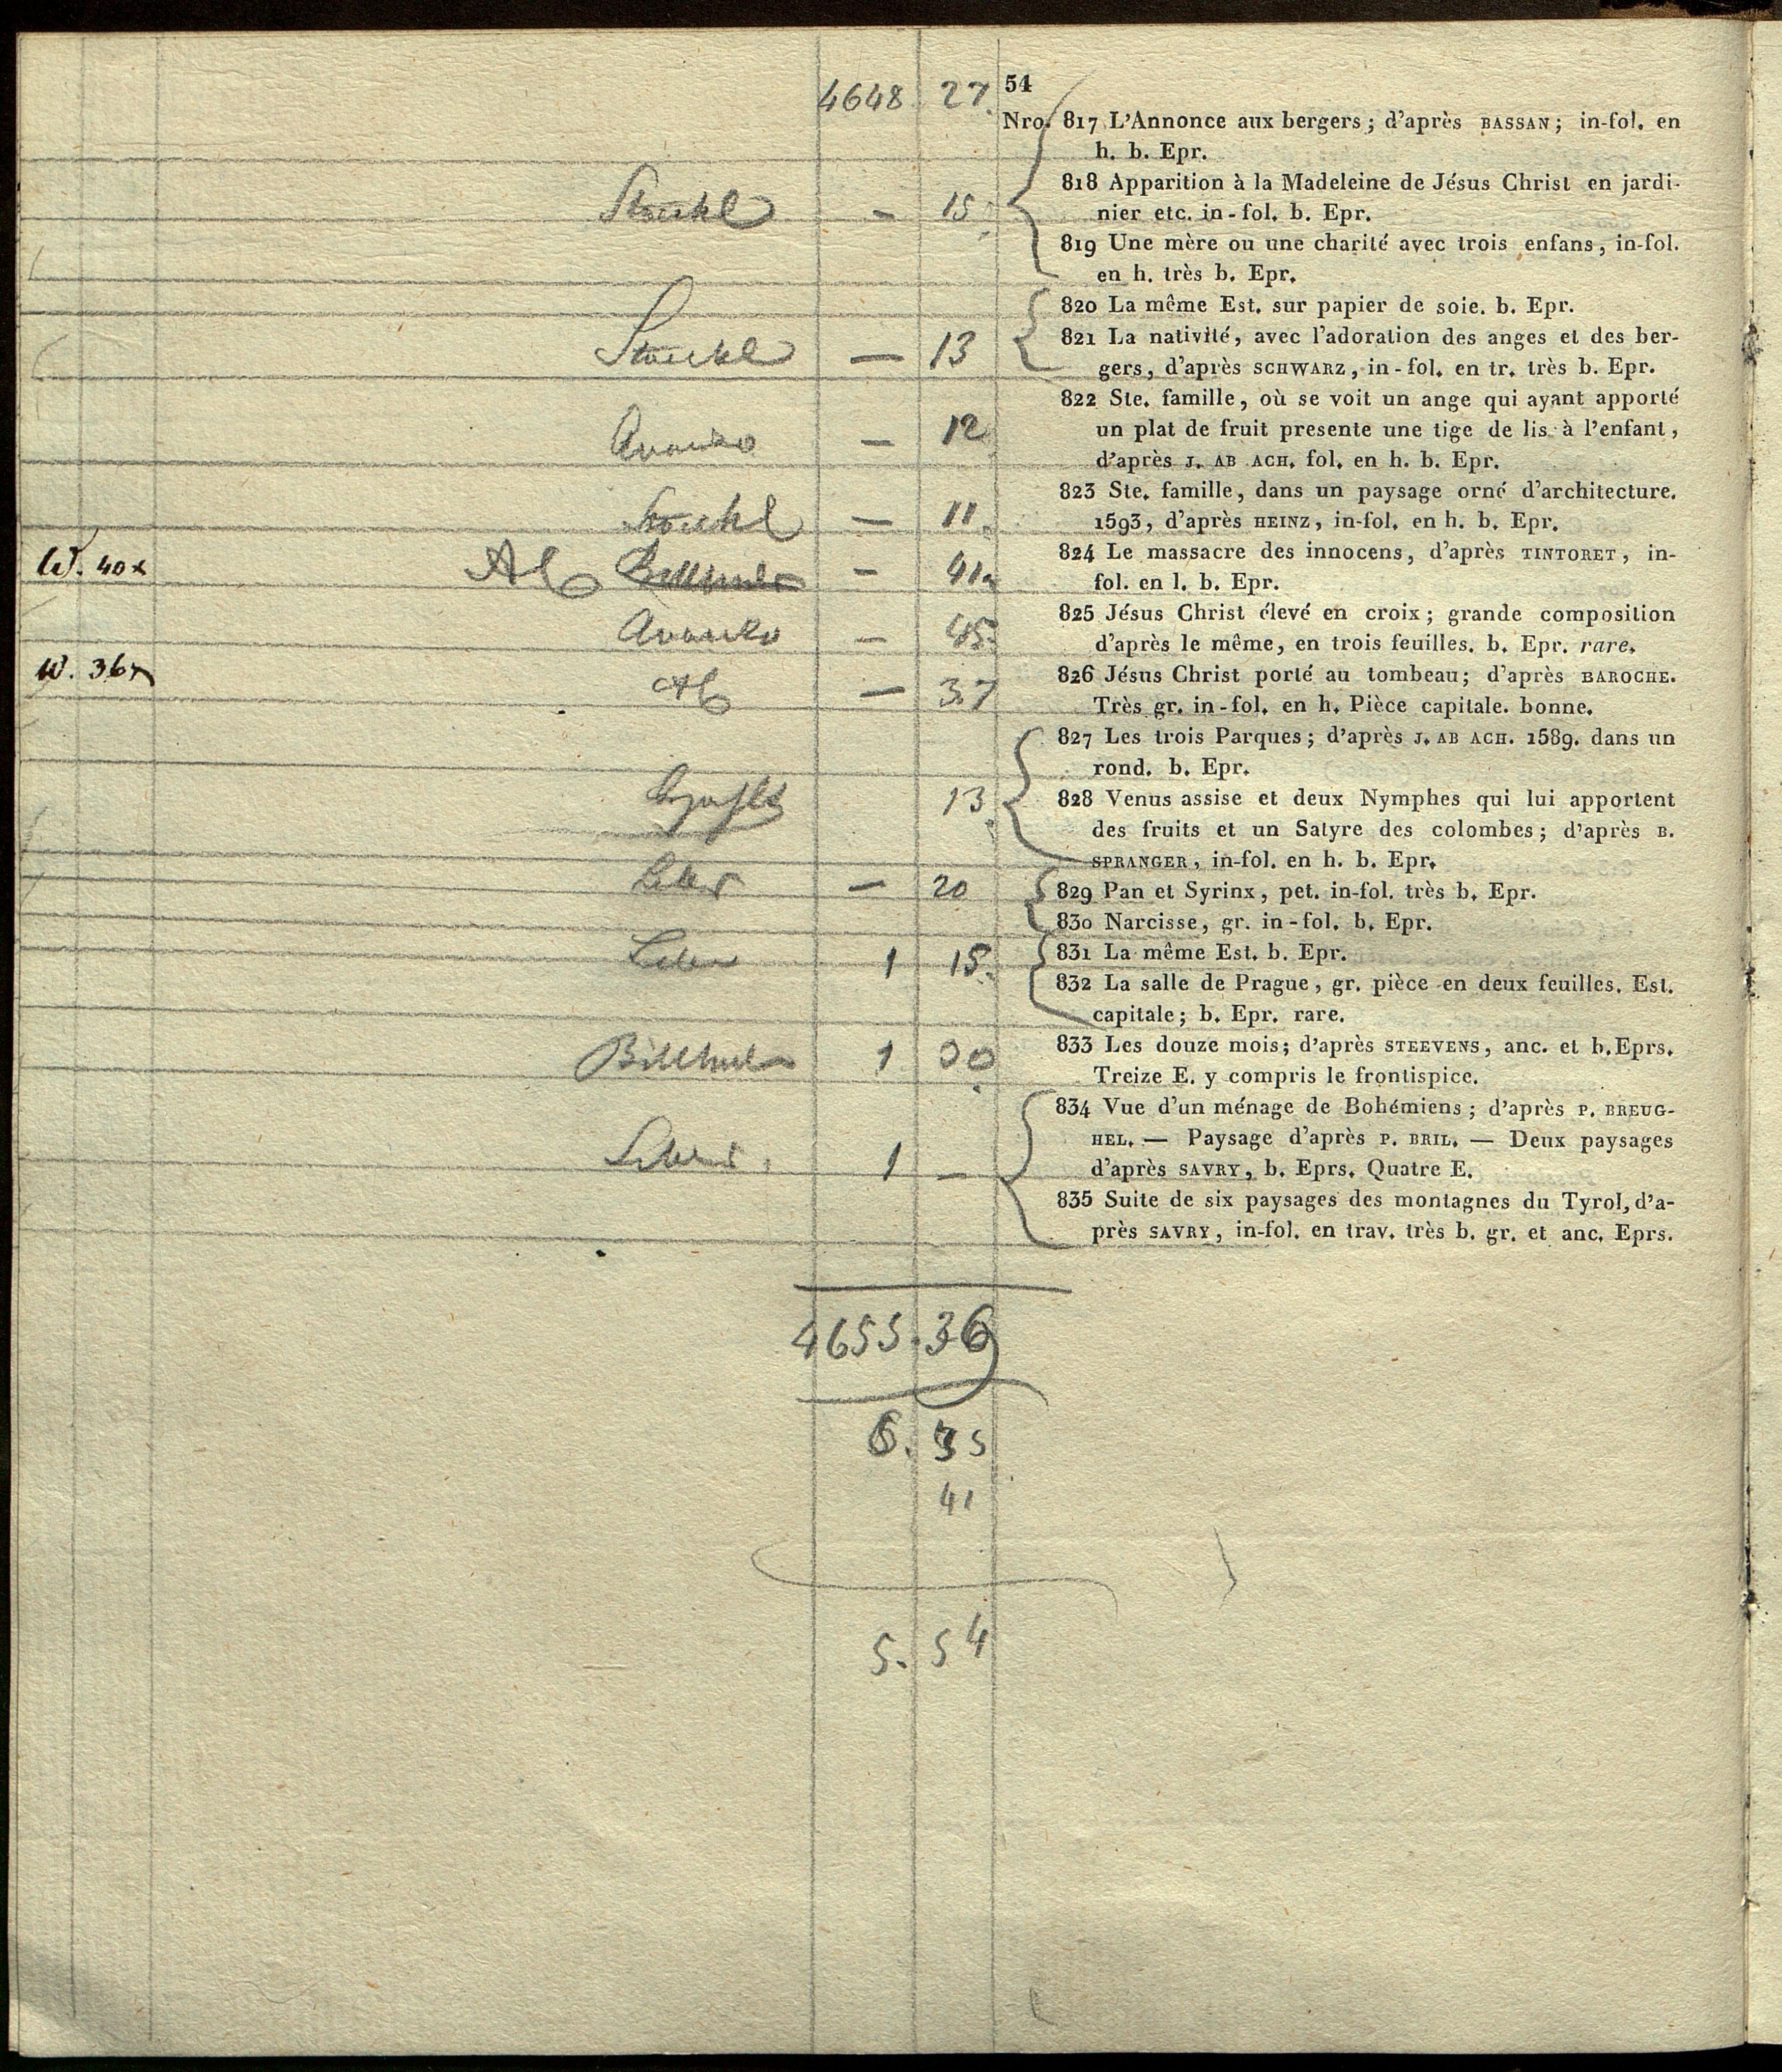 4648 27. 54
Nro. 817 L'Annonce aux bergers; d'après BASSAN; in-fol. en
h. b. Epr.
818 Apparition à la Madeleine de Jésus Christ en jardi-
Stöckl – 15. nier etc. in-fol. b. Epr.
819 Une mère ou une charité avec trois enfans, in-fol.
en h. très b. Epr.
820 La même Est. sur papier de soie. b. Epr.
821 La nativité, avec l'adoration des anges et des ber-
Stöckl — 13 gers, d'après SCHWARZ, in-fol. en tr. très b. Epr.
822 Ste. famille, où se voit un ange qui ayant apporté
— 12 un plat de fruit presente une tige de lis à l'enfant,
d'après J. AB ACH. fol. en h. b. Epr.
823 Ste. famille, dans un paysage orné d'architecture.
Stöckl — 11. 1593, d'après HEINZ, in-fol. en h. b. Epr.
824 Le massacre des innocens, d'après TINTORET, in-
W. 40x – 41 fol. en l. b. Epr.
825 Jésus Christ élevé en croix; grande composition
– 45. d'après le même, en trois feuilles. b. Epr. rare.
826 Jésus Christ porté au tombeau; d'après BAROCHE.
W. 36x — 37 Très gr. in-fol. en h. Pièce capitale. bonne.
827 Les trois Parques; d'après J. AB ACH. 1589. dans un
rond. b. Epr.
13. 828 Venus assise et deux Nymphes qui lui apportent
des fruits et un Satyre des colombes; d'après B.
SPRANGER, in-fol. en h. b. Epr.
— 20 829 Pan et Syrinx, pet. in-fol. très b. Epr.
830 Narcisse, gr. in-fol. b. Epr.
1 15. 831 La même Est. b. Epr.
832 La salle de Prague, gr. pièce en deux feuilles. Est.
capitale; b. Epr. rare.
1 30 833 Les douze mois; d'après STEEVENS, anc. et b. Eprs.
Treize E. y compris le frontispice.
834 Vue d'un ménage de Bohémiens; d'après P. BREUG-
HEL. — Paysage d'après P. BRIL. — Deux paysages
1 — d'après SAVRY, b. Eprs. Quatre E.
835 Suite de six paysages des montagnes du Tyrol, d'a-
près SAVRY, in-fol. en trav. très b. gr. et anc. Eprs.
4655.36
6. 35
41
5. 54